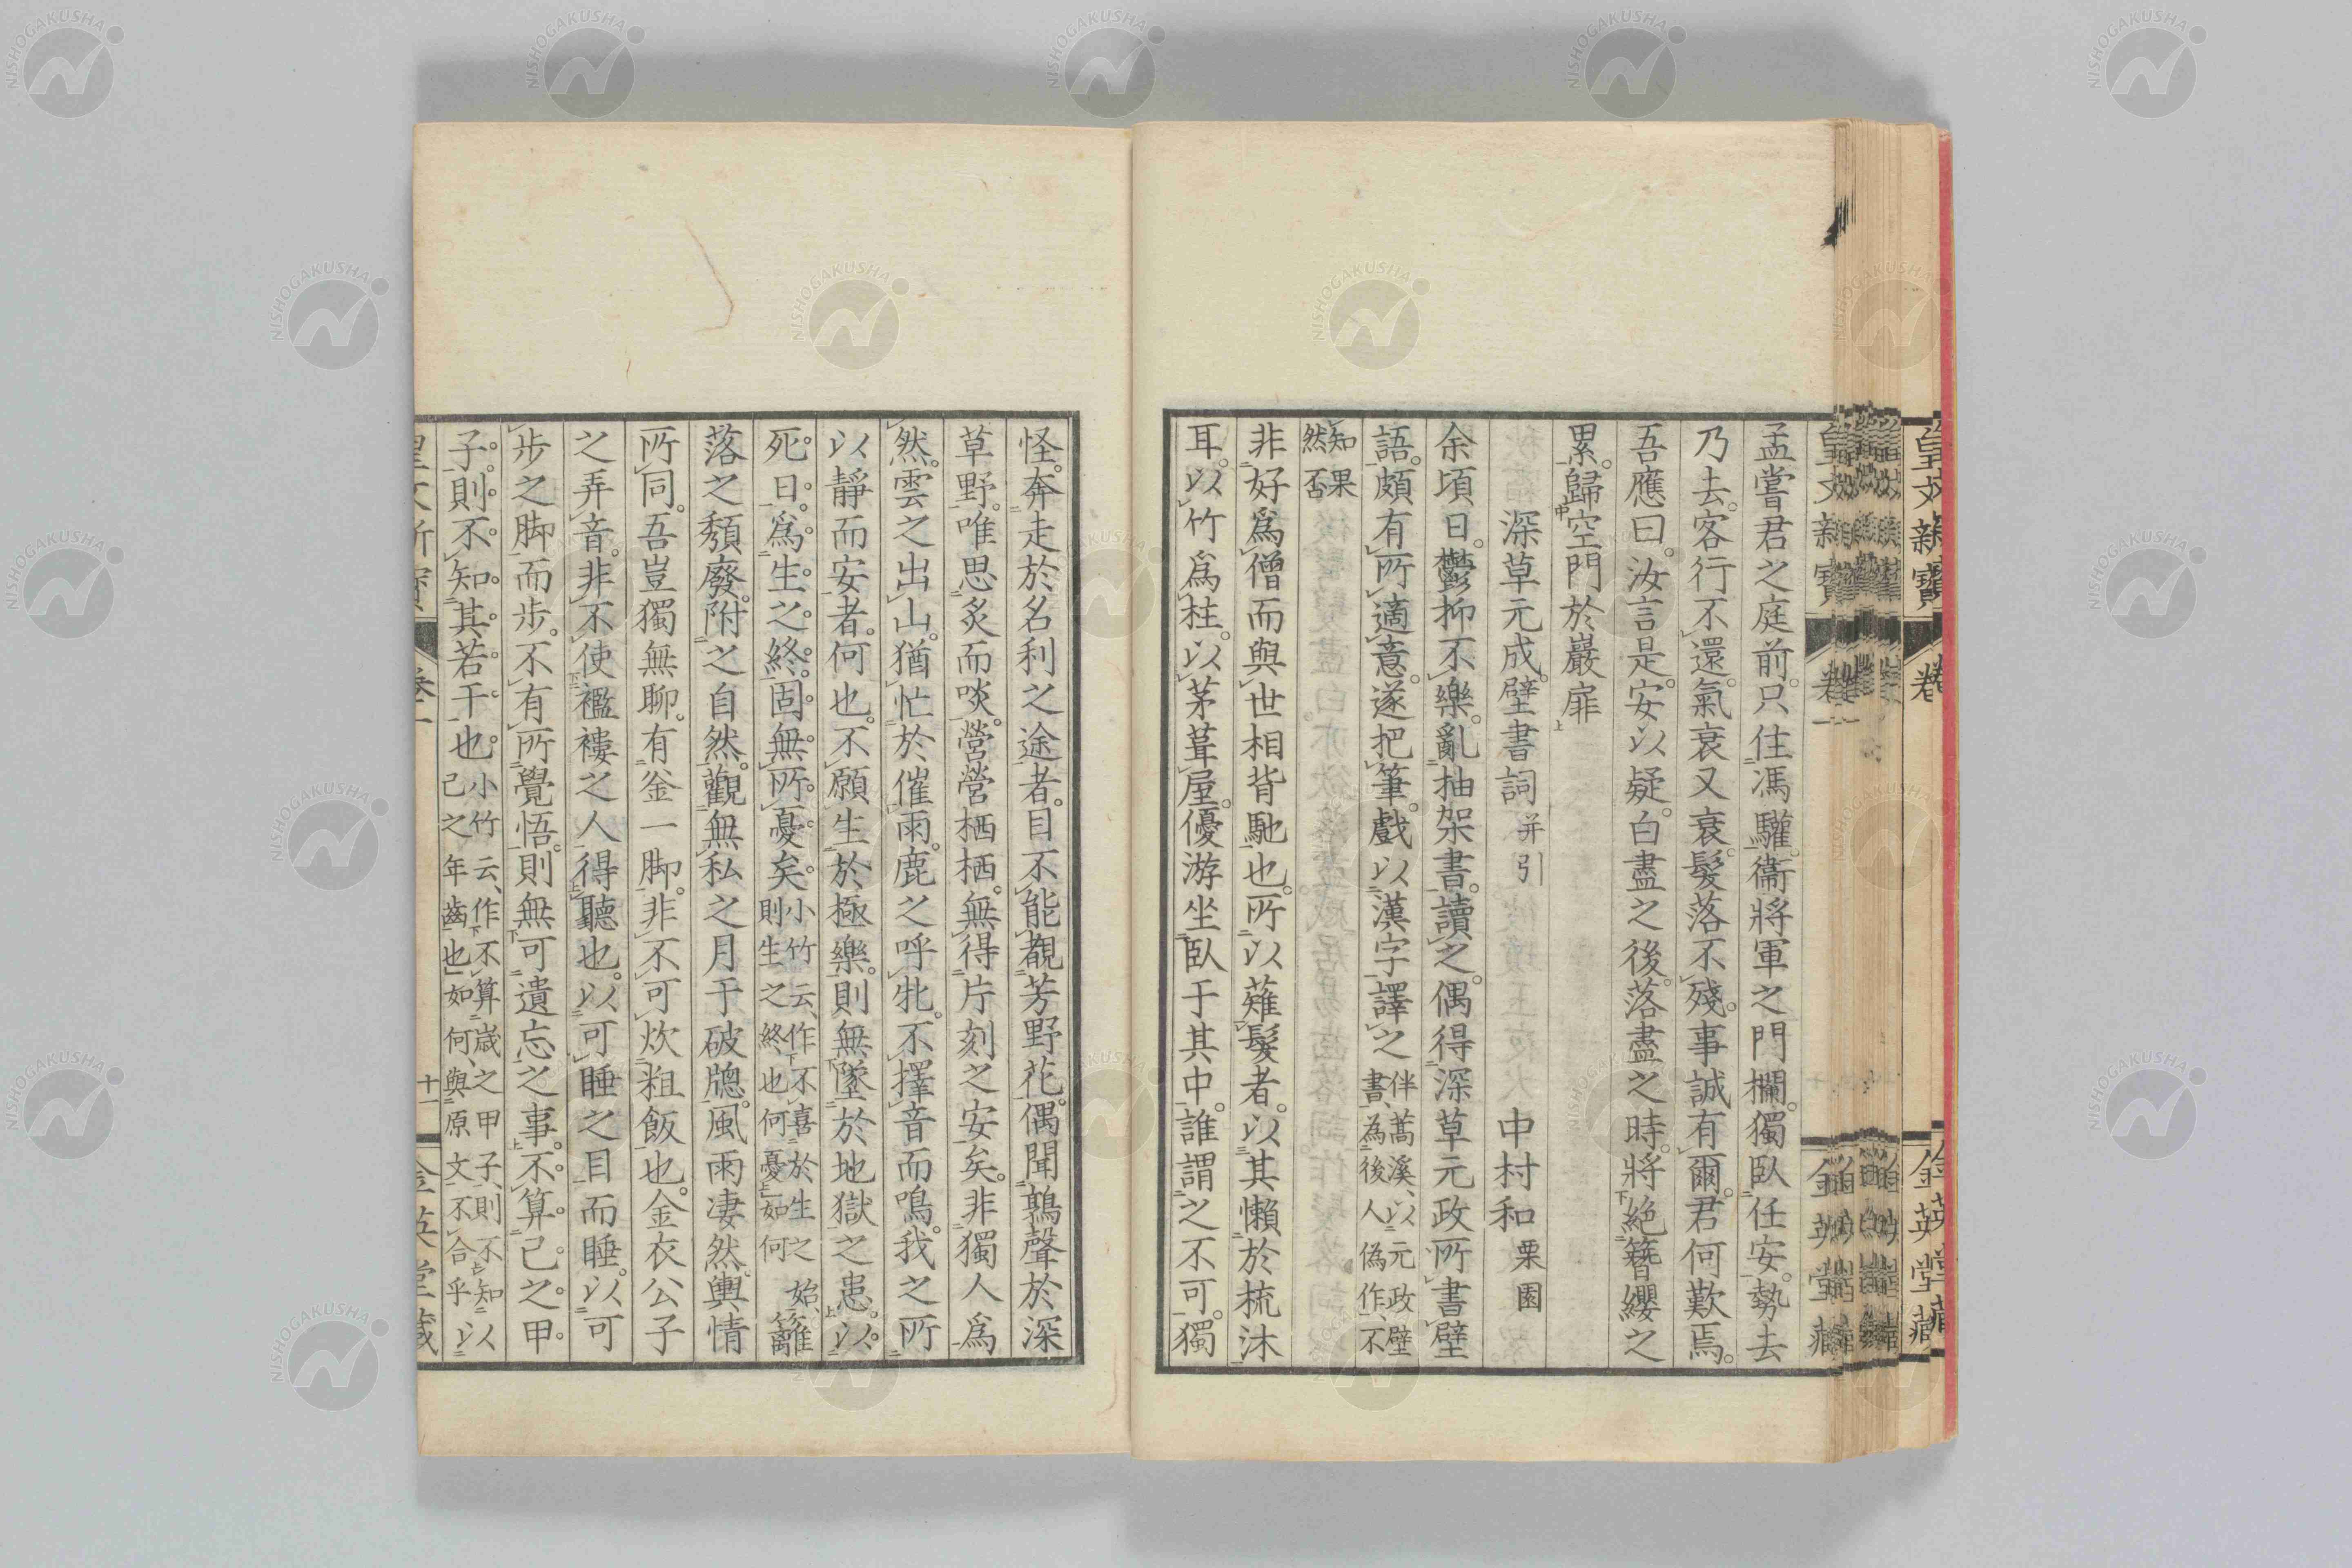 孟嘗君之庭前。只住馮驩。衞將軍之門欄。獨臥任安。勢去
乃去。客行不還。氣衰又衰。髮落不殘。事誠有爾。君何歎焉。
吾應曰。汝言是。安以疑。白盡之後。落盡之時。將絶簪纓之
累。歸空門於巖扉
深草元成。壁書詞 并引 中村和 栗園
余頃日。鬱抑不樂。亂抽架書。讀之。偶得深草元政所書壁
語。頗有所適意。遂把筆。戲以漢字譯之 伴蒿溪、以元政壁書、為後人偽作、不
知果然否
非好爲僧而與世相背馳也。所以薙髮者。以其懶於梳沐
耳。以竹爲柱。以茅葺屋。優游坐臥于其中。誰謂之不可。獨
怪。奔走於名利之途者。目不能覩芳野花。偶聞鶉聲於深
草野。唯思炙而啖。營營栖栖。無得片刻之安矣。非獨人爲
然。雲之出山。猶忙於催雨。鹿之呼牝。不擇音而鳴。我之所
以靜而安者。何也。不願生於極樂。則無墜於地獄之患。以
死日。爲生之終。固無所憂矣。小竹云、作不喜於生之始、則生之終也何憂如何 籬
落之頽廢。附之自然。觀無私之月于破牕。風雨凄然。輿情
所同。吾豈獨無聊。有釜一脚。非不可炊粗飯也。金衣公子
之弄音。非不使襤褸之人得聽也。以可睡之目而睡。以可
步之脚而步。不有所覺悟。則無可遺忘之事。不算己之甲
子。則不知其若干也。小竹云、作不算歲之甲子、則不知己之年齒也」如何、與原文不合乎 以
皇文新寶 卷一 十一 金英堂藏
NISHOGAKUSHA